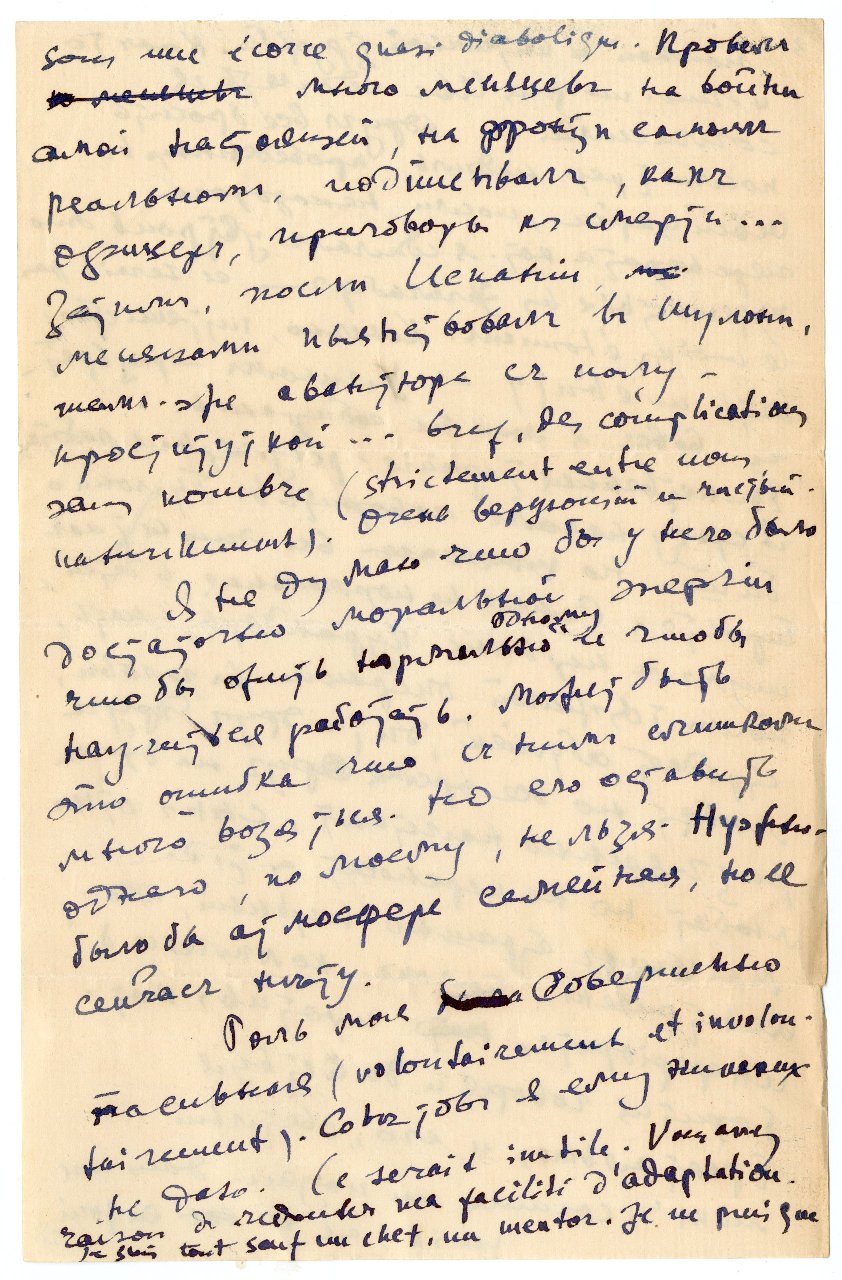 sous une écorce quasi diabolique. Провелъ
много месяцевъ на войнѣ
самой настоящей, на фронтѣ самомъ
реальномъ, подписывалъ, какъ
офицеръ, приговоры къ смерти...
Затѣмъ, послѣ Испаніи,
мѣсяцами пьянствовалъ въ Тулонѣ,
тамъ-же авантюра съ полу-
проституткой... bref, des complications
sans nombre (strictement entre nous,
naturellement). Очень верующій и чистый.
Я не думаю чтобы у него было
достаточно моральной энергіи
чтобы жить нормально одному и чтобы
научиться работать. Можетъ быть
это ошибка что съ нимъ слишкомъ
много возятся. Но его оставить
одного, по моему, нельзя. Нужно-
было бы атмосфера семейная, но ее
сейчасъ нѣту.
Роль моя совершенно
пассивная (volontairement et involon-
tairement). Совѣтовъ я ему никакихъ
не даю. Ce serait inutile. Vous avez
raison de redouter ma facilité d'adaptation.
Je suis tout sauf un chef, un mentor. Je ne puis que